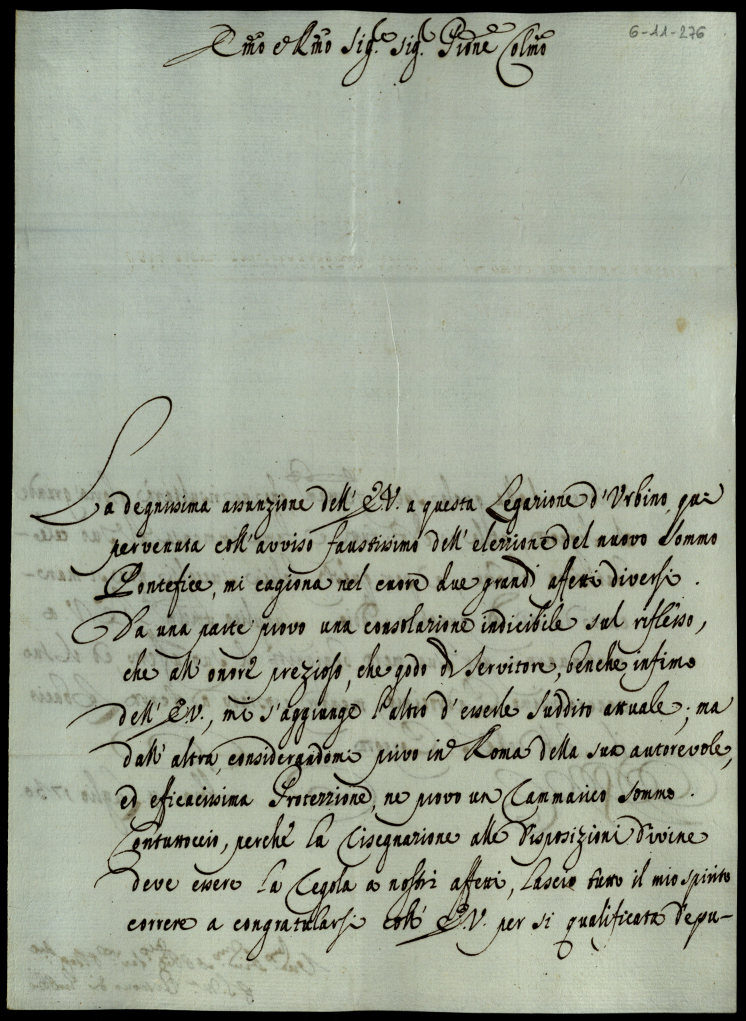 6-11-276
Emo e Rmo Sig.re Sig.r Prone Colmo
La degnissima assunzione dell' E.V. a questa Legazione d'Urbino, quà
pervenuta coll'avviso faustissimo dell'elezzione del nuovo Sommo
Pontefice, mi cagiona nel cuore due grandi affetti diversi.
Da una parte provo una consolazione indicibile sul riflesso,
che all'onore prezioso, che godo di Servitore, benche infimo
dell' E.V., mi s'aggiunge l'altro d'esserle suddito attuale; ma
dall'altra, considerandomi privo in Roma della sua autorevole,
ed efficacissima Protezzione, ne provo un Rammarico sommo.
Contuttociò, perchè la Risegnazione alle Disposizioni Divine
deve essere la Regola a nostri affetti, lascio tutto il mio spirito
correre a congratularsi coll' E.V. per si qualificata Depu-